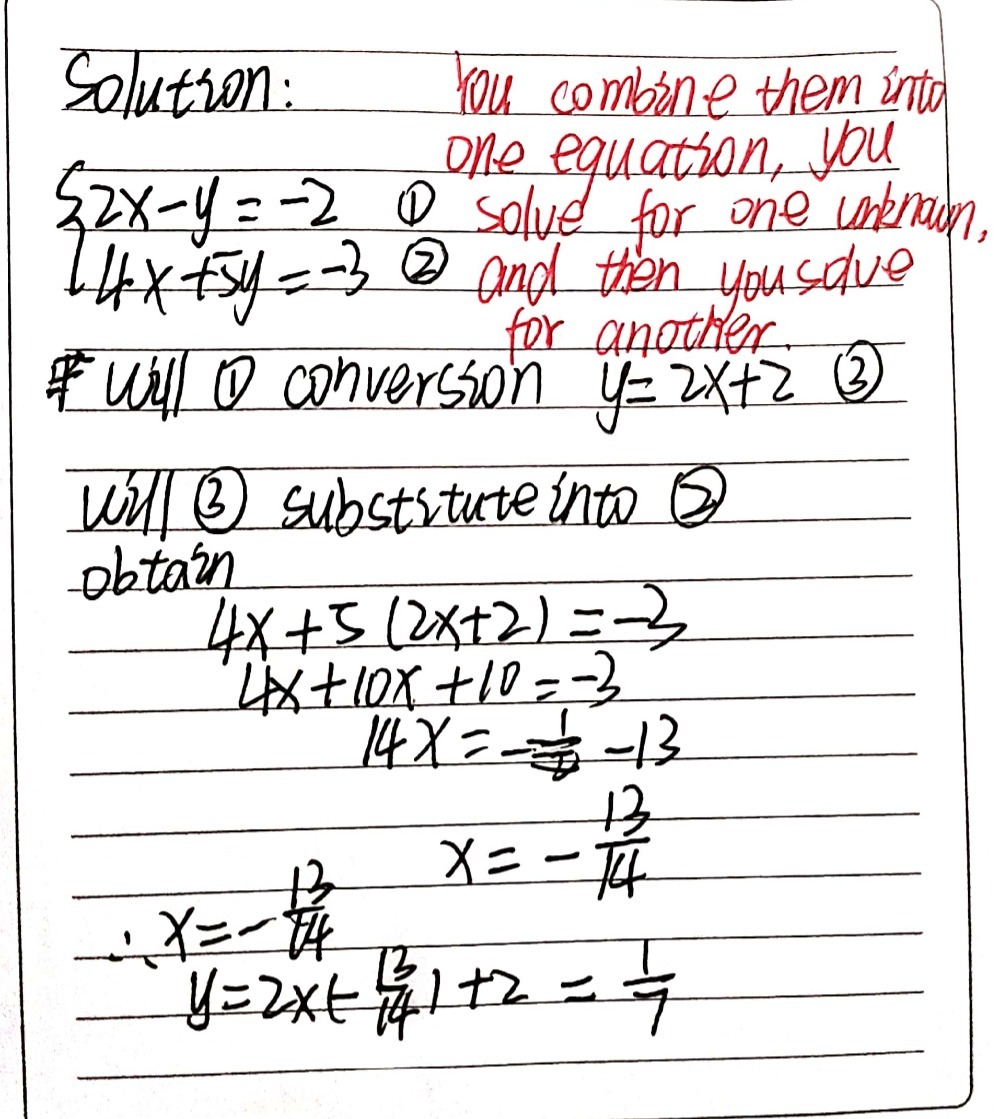 Solution:
You combine them into
one equation, you
solve for one unknown,
and then you solve
for another.
{2x-y=-2 ①
4x+5y=-3 ②
Will ① conversion y=2x+2 ③
Will ③ substitute into ②
obtain
4x+5(2x+2)=-3
4x+10x+10=-3
14x= -13
x=-13/14
∴ x=-13/14
y=2×(-13/14)+2=1/7